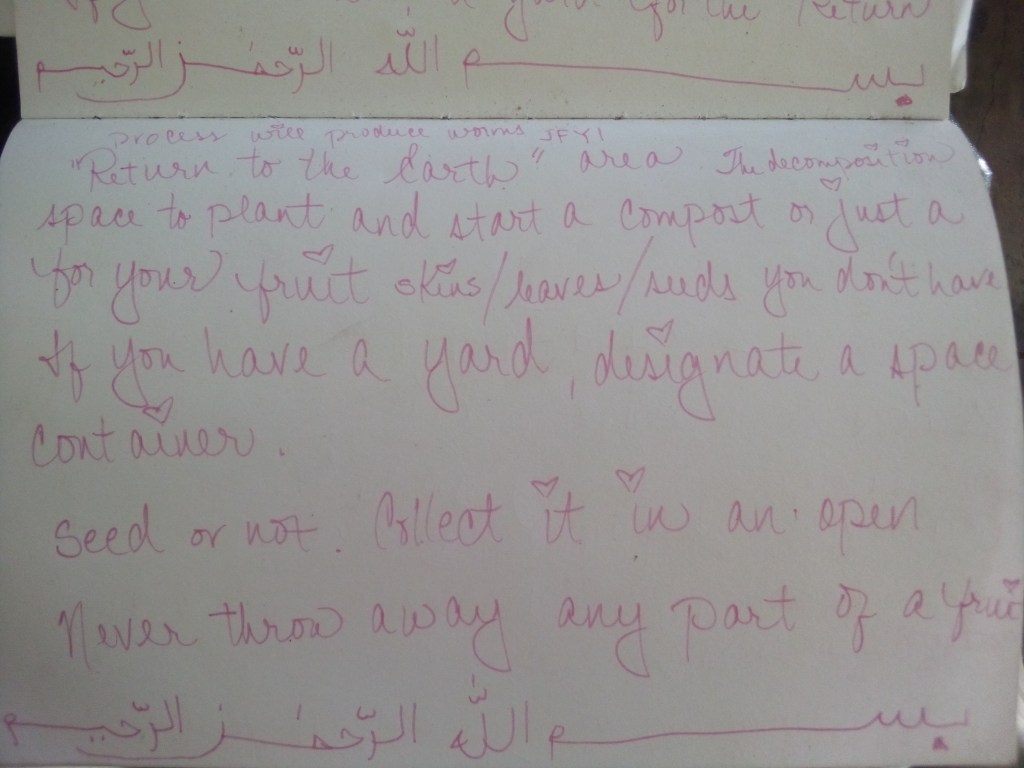 for the Return
بســـــم الله الرّحمٰن الرّحيم
process will produce worms JFYI
"Return to the Earth" area. The decomposition
space to plant and start a compost or just a
for your fruit skins/leaves/seeds you don't have
If you have a yard, designate a space
container.
seed or not. Collect it in an open
Never throw away any part of a fruit
بســـــم اللّٰه الرّحمٰن الرّحيم